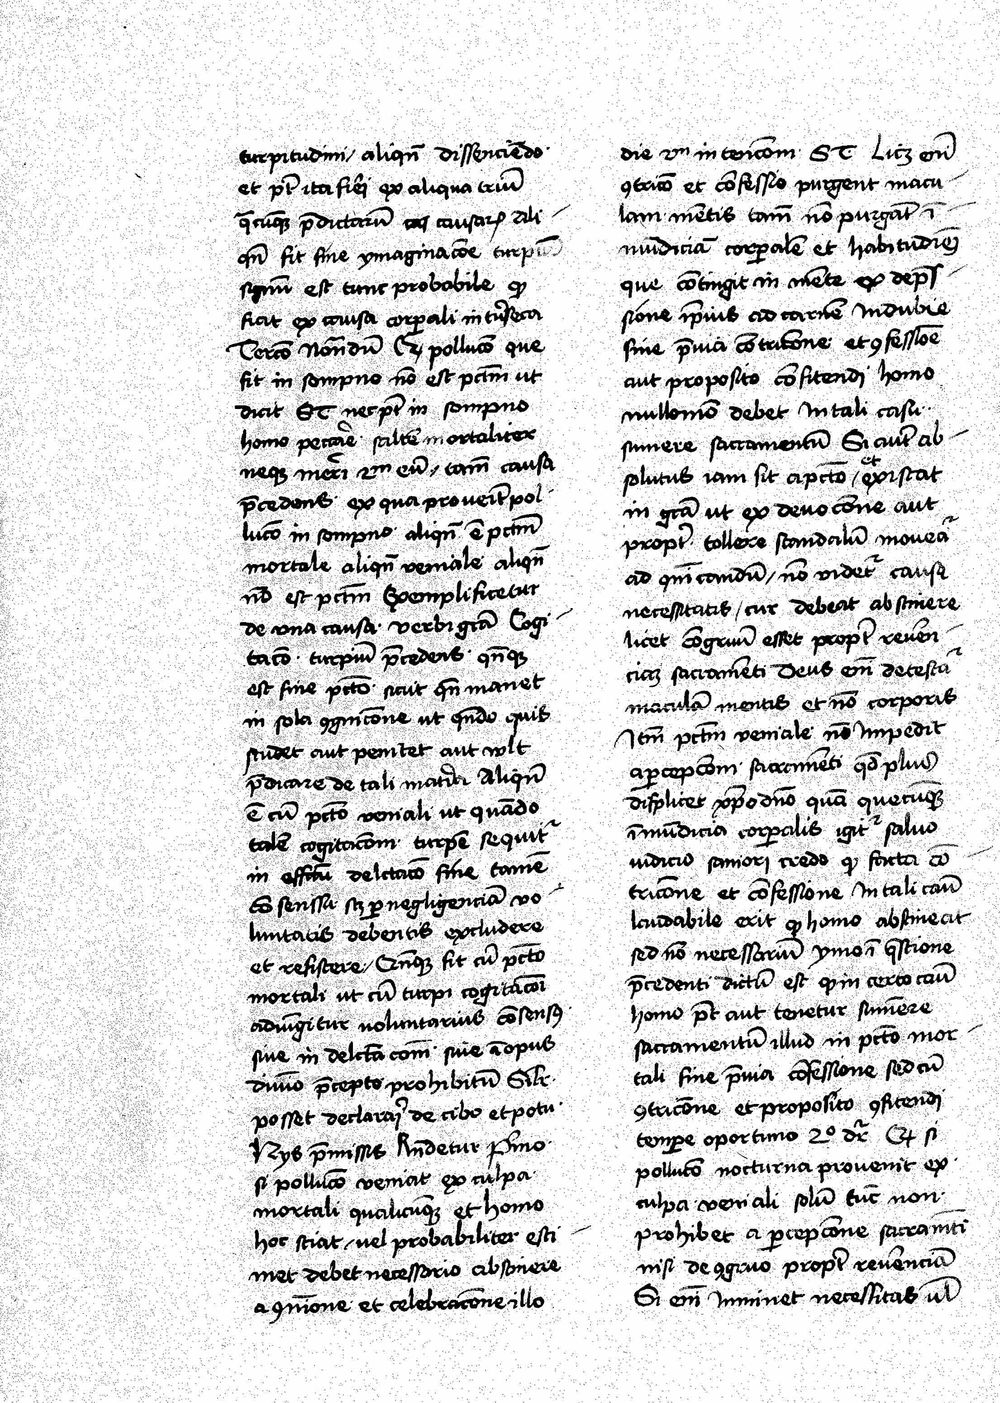 turpitudini / aliqñ dissenciēdo
et pōt ita fieri ex aliqua triū
q̄cūqȝ p̄dictarū causarꝝ Ali
qñ fit sine ymaginacōe turpiū
signū est tunc probabile ꝙ
fiat ex causa corꝑali intrīseca
Tercō Nōndū Ꝙ pollucō que
fit in sompno nō est pctm̄ ut
dicit ST nec pōt in sompno
homo peccare saltē mortaliter
neqȝ mereri tamē causa
p̄cedens ex qua proveīt pol
lucō in sompno aliqñ ē pctm̄
mortale aliqñ veniale aliqñ
nō est pctm̄ Exemplificetur
de vna causa verbi grā Cogi
tacō turpiū p̄cedens qñqȝ
est sine pctō sicut qñ manet
in sola ꝯgnicōne ut qñdo quis
studet aut penitet aut wlt
p̄dicare de tali materia Aliqñ
ē cū pctō veniali ut quādo
talē cogitacōem turpē sequitr
in effctū delctacō sine tamē
ꝯsensu scȝ ꝑ negligenciā vo
luntatis debentis excludere
et resistere / Qñqȝ fit cū pctō
mortali ut cū turpi cogitacōi
adiūgitur voluntarius cōsensꝯ
siue in delctacōem siue ī opus
diuīo p̄cepto prohibitū Silr
posset declarari de cibo et potu
Hys p̄missis Rñdetur Primo
si pollucō veniat ex culpa
mortali qualicūqȝ et homo
hoc sciat / vel probabiliter esti
met debet necessario abstinere
a ꝯmūione et celebracōne illo
die ST Licȝ em̄
ꝯtricō et cōfessio purgent macu
lam mētis tamē nō purgāt ī
mūdiciā corꝑalē et habitudinē
que cōtingit in mēte ex dep̄s
sione ip̄ius ad carnē Indubie
sine p̄uia cōtricōne et ꝯfessiōe
aut proposito cōfitendi homo
nullomō debet In tali casu
sumere sacramentū Si aut̄ ab
solutus iam sit a pctō / et existat
in grā ut ex deuocōne aut
proptr tollere scandalū moueatr
ad ꝯmūicandū / nō videtr causa
necessitatis / cur debeat abstinere
licet cōgruū esset proptr reueren
ciaȝ sacramēti Deus em̄ detestatr
maculā mentis et nō corporis
Itm̄ pctm̄ veniale nō Impedit
a ꝑcepcōem sacramēti qd̄ plus
displicet xp̄o dn̄o quā quecūqȝ
īmūdicia corꝑalis igitr saluo
iudicio saniori credo ꝙ facta cō
tricōne et cōfessione In tali casu
laudabile erit ꝙ homo abstineat
sed nō necessariū ymo ī q̄stione
p̄cedenti dictū est ꝙ in certo casu
homo pōt aut tenetur sumere
sacramentū illud in pctō mor
tali sine p̄uia cōfessione sed cū
ꝯtricōne et proposito ꝯfitendi
temꝑe oportuno 2º dr̄ Ꝙ si
pollucō nocturna prouenit ex
culpa veniali solū tūc non
prohibet a ꝑcepcōne sacramēti
nisi de ꝯgruo proptr reuerenciā
Si em̄ Imminet necessitas ul̄